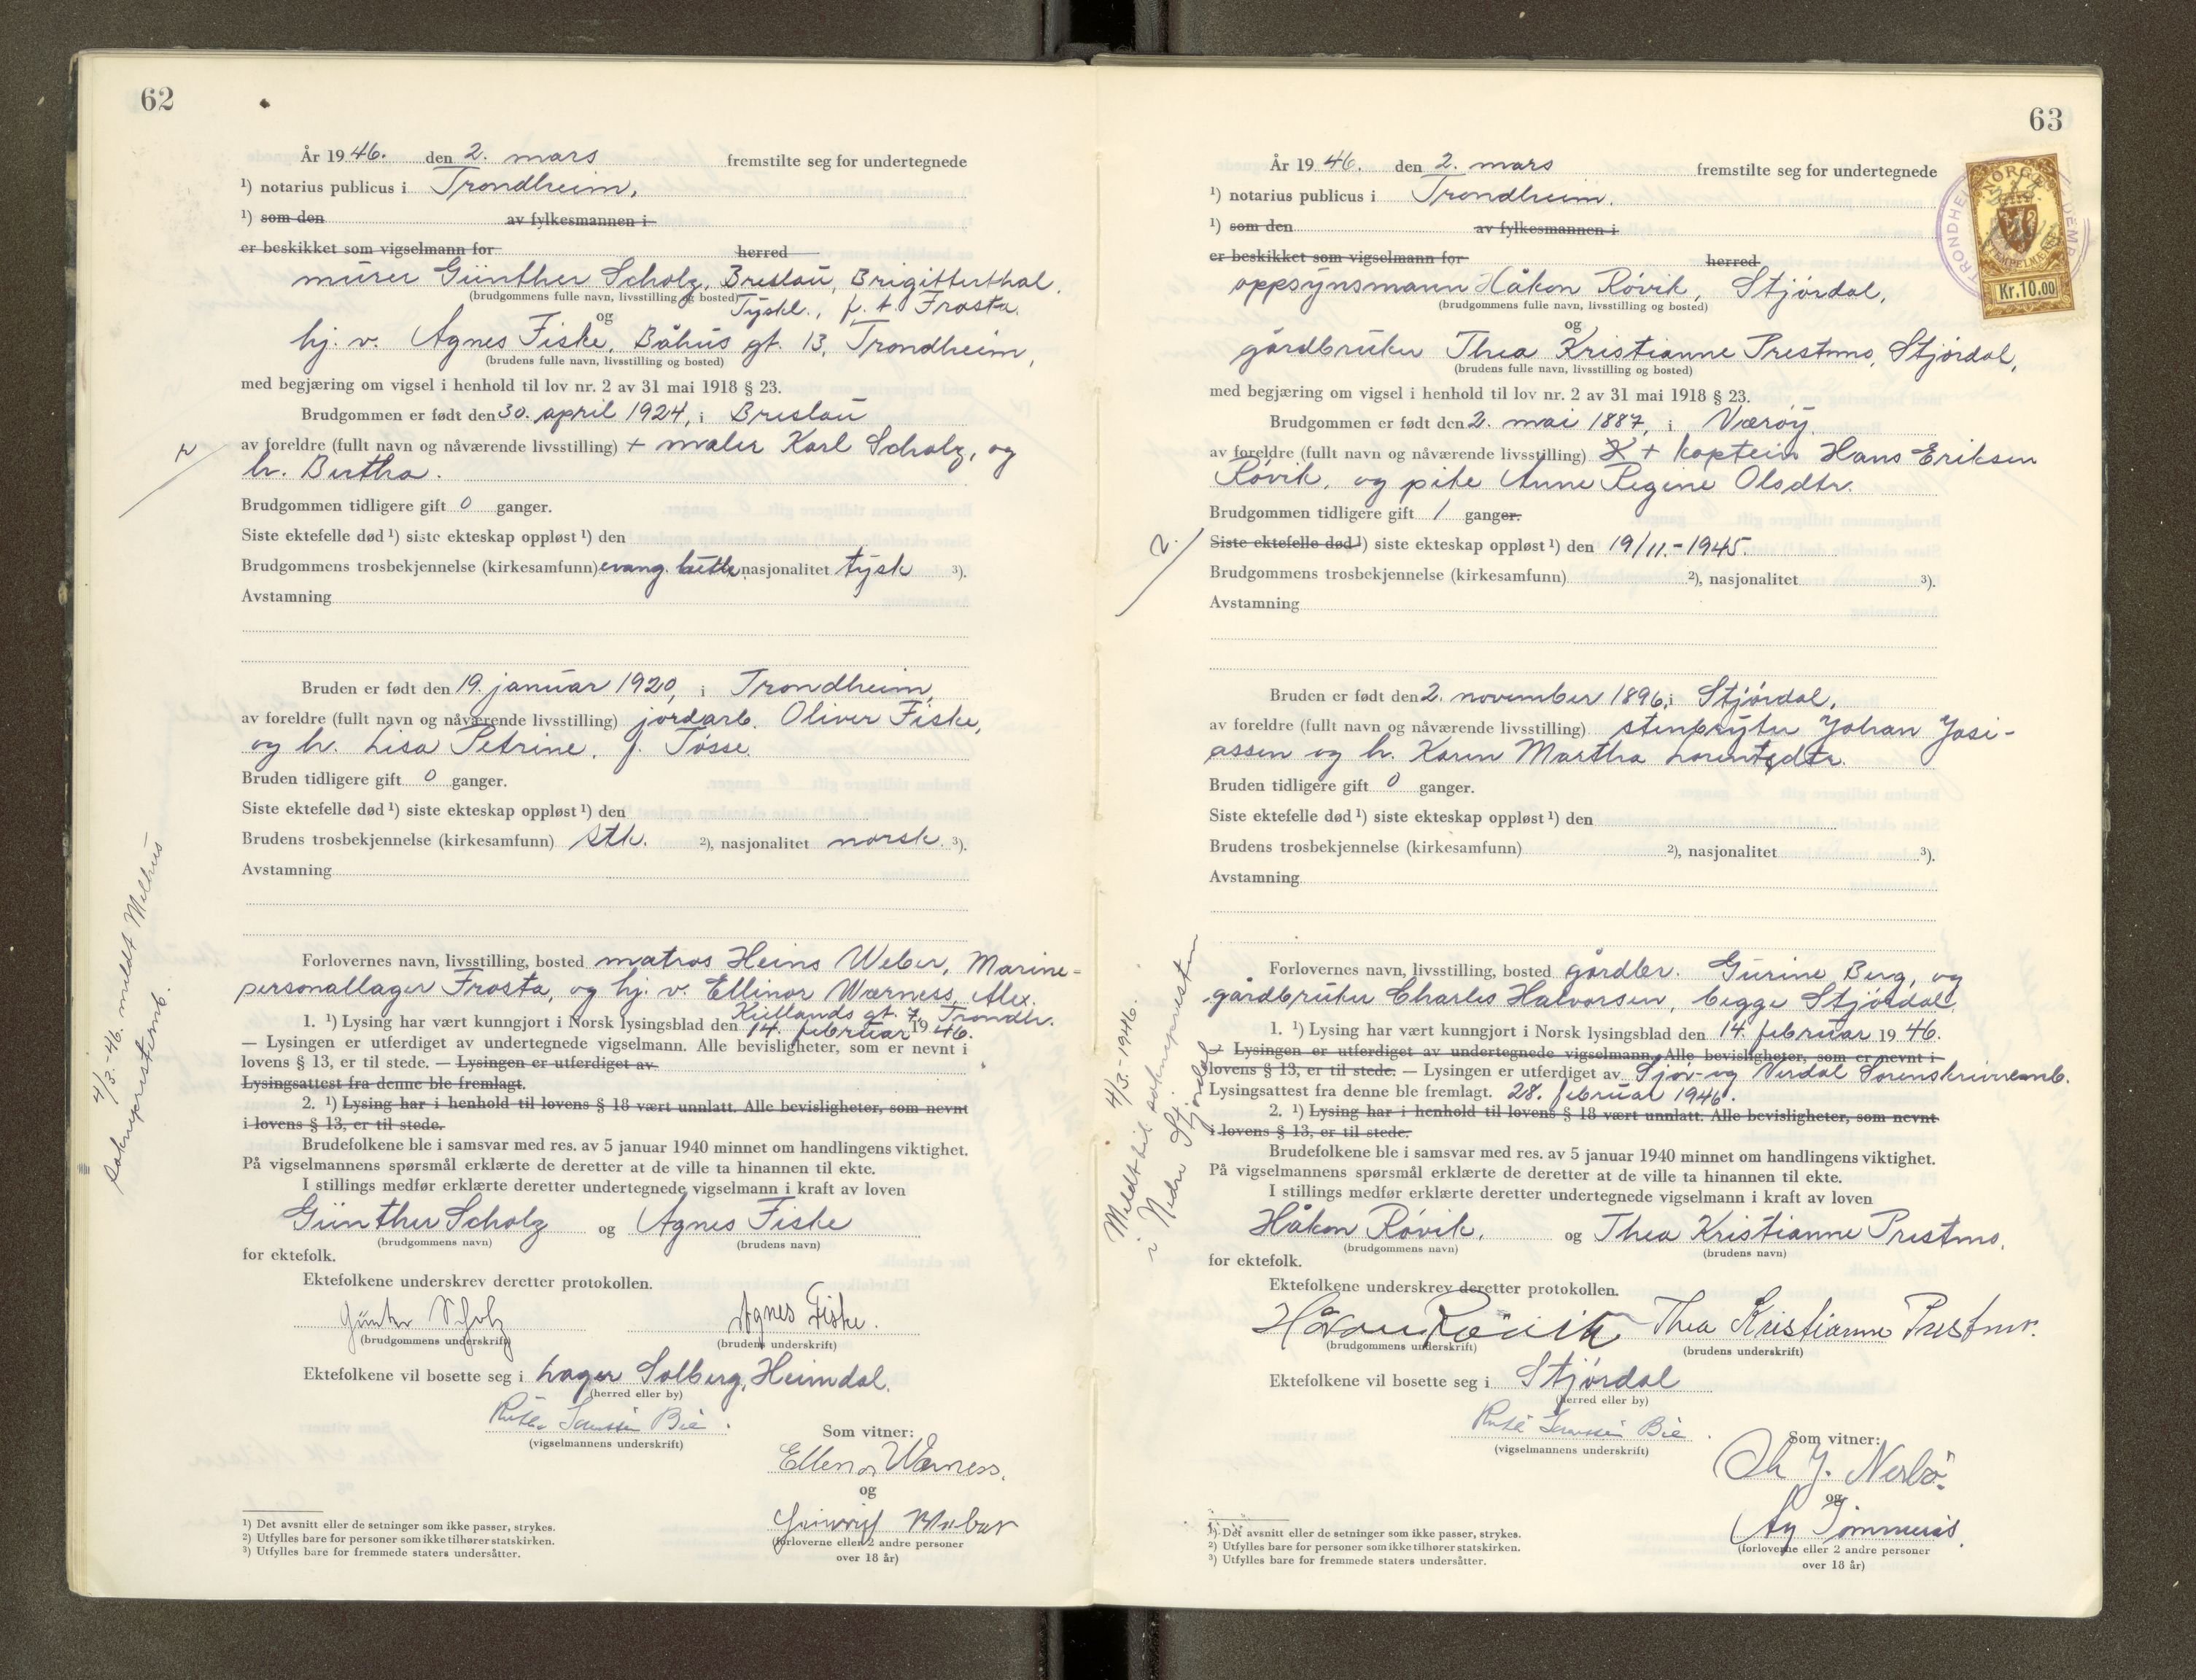 62
År 1946. den 2. mars fremstilte seg for undertegnede
¹) notarius publicus i Trondheim,
¹) som den av fylkesmannen i
er beskikket som vigselmann for herred
murer Günther Scholz, Breslau, Brigittenthal,
(brudgommens fulle navn, livsstilling og bosted) Tyskl., p. t. Frosta.
og
hj. v. Agnes Fiske, Båhus gt. 13, Trondheim,
(brudens fulle navn, livsstilling og bosted)
med begjæring om vigsel i henhold til lov nr. 2 av 31 mai 1918 § 23.
Brudgommen er født den 30. april 1924, i Breslau
av foreldre (fullt navn og nåværende livsstilling) + maler Karl Scholz, og
h. Bertha.
Brudgommen tidligere gift 0 ganger.
Siste ektefelle død ¹) siste ekteskap oppløst ¹) den
Brudgommens trosbekjennelse (kirkesamfunn) evang. luth. nasjonalitet tysk ³).
Avstamning
Bruden er født den 19. januar 1920, i Trondheim,
av foreldre (fullt navn og nåværende livsstilling) jordarb. Oliver Fiske,
og h. Lisa Petrine, f. Tøsse.
Bruden tidligere gift 0 ganger.
Siste ektefelle død ¹) siste ekteskap oppløst ¹) den
Brudens trosbekjennelse (kirkesamfunn) stk. ²), nasjonalitet norsk. ³).
Avstamning
Forlovernes navn, livsstilling, bosted matros Heins Weber, Marine-
personallager Frosta, og hj. v. Ellinor Wærness, Alex.
Kiellands gt. 7, Trondh.
1. ¹) Lysing har vært kunngjort i Norsk lysingsblad den 14. februar 1946.
— Lysingen er utferdiget av undertegnede vigselmann. Alle bevisligheter, som er nevnt i
lovens § 13, er til stede. — Lysingen er utferdiget av
Lysingsattest fra denne ble fremlagt.
2. ¹) Lysing har i henhold til lovens § 18 vært unnlatt. Alle bevisligheter, som nevnt
i lovens § 13, er til stede.
Brudefolkene ble i samsvar med res. av 5 januar 1940 minnet om handlingens viktighet.
På vigselmannens spørsmål erklærte de deretter at de ville ta hinannen til ekte.
I stillings medfør erklærte deretter undertegnede vigselmann i kraft av loven
Günther Scholz og Agnes Fiske
(brudgommens navn) (brudens navn)
for ektefolk.
Ektefolkene underskrev deretter protokollen.
Günter Scholz Agnes Fiske.
(brudgommens underskrift) (brudens underskrift)
Ektefolkene vil bosette seg i Lager Solberg, Heimdal.
(herred eller by)
Bie
(vigselmannens underskrift)
Som vitner:
Ellenor Wærness.
og
Heinrich Weber
(forloverne eller 2 andre personer
over 18 år)
¹) Det avsnitt eller de setninger som ikke passer, strykes.
²) Utfylles bare for personer som ikke tilhører statskirken.
³) Utfylles bare for fremmede staters undersåtter.
4/3.-46. meldt Melhus
sokneprestemb.
63
År 1946. den 2. mars fremstilte seg for undertegnede
¹) notarius publicus i Trondheim.
¹) som den av fylkesmannen i
er beskikket som vigselmann for herred
NORGE
STEMPELMERKE
Kr. 10.00
oppsynsmann Håkon Røvik, Stjørdal,
(brudgommens fulle navn, livsstilling og bosted)
og
gårdbruker Thea Kristianne Prestmo, Stjørdal,
(brudens fulle navn, livsstilling og bosted)
med begjæring om vigsel i henhold til lov nr. 2 av 31 mai 1918 § 23.
Brudgommen er født den 2. mai 1887, i Værøy.
av foreldre (fullt navn og nåværende livsstilling) + kaptein Hans Eriksen
Røvik, og pike Anne Regine Olsdtr.
Brudgommen tidligere gift 1 ganger.
2.
Siste ektefelle død ¹) siste ekteskap oppløst ¹) den 19/11.-1945.
Brudgommens trosbekjennelse (kirkesamfunn) ²), nasjonalitet ³).
Avstamning
Bruden er født den 2. november 1896, i Stjørdal,
av foreldre (fullt navn og nåværende livsstilling) stenbryter Johan Josi-
assen og h. Karen Martha Lorentsdtr.
Bruden tidligere gift 0 ganger.
Siste ektefelle død ¹) siste ekteskap oppløst ¹) den
Brudens trosbekjennelse (kirkesamfunn) ²), nasjonalitet ³).
Avstamning
Forlovernes navn, livsstilling, bosted gårdbr. Gurine Berg, og
gårdbruker Charles Halvorsen, begge Stjørdal.
1. ¹) Lysing har vært kunngjort i Norsk lysingsblad den 14. februar 1946.
— Lysingen er utferdiget av undertegnede vigselmann. Alle bevisligheter, som er nevnt i
lovens § 13, er til stede. — Lysingen er utferdiget av Stjør- og Verdal Sorenskriveremb.
Lysingsattest fra denne ble fremlagt. 28. februar 1946.
2. ¹) Lysing har i henhold til lovens § 18 vært unnlatt. Alle bevisligheter, som nevnt
i lovens § 13, er til stede.
Brudefolkene ble i samsvar med res. av 5 januar 1940 minnet om handlingens viktighet.
På vigselmannens spørsmål erklærte de deretter at de ville ta hinannen til ekte.
I stillings medfør erklærte deretter undertegnede vigselmann i kraft av loven
Håkon Røvik. og Thea Kristianne Prestmo.
(brudgommens navn) (brudens navn)
for ektefolk.
Ektefolkene underskrev deretter protokollen.
Håkon Røvik Thea Kristianne Prestmo.
(brudgommens underskrift) (brudens underskrift)
Ektefolkene vil bosette seg i Stjørdal
(herred eller by)
Bie
(vigselmannens underskrift)
Som vitner:
J. Nesbø.
og
(forloverne eller 2 andre personer
over 18 år)
¹) Det avsnitt eller de setninger som ikke passer, strykes.
²) Utfylles bare for personer som ikke tilhører statskirken.
³) Utfylles bare for fremmede staters undersåtter.
4/3.-1946.
Meldt til soknepresten
i Nedre Stjørdal